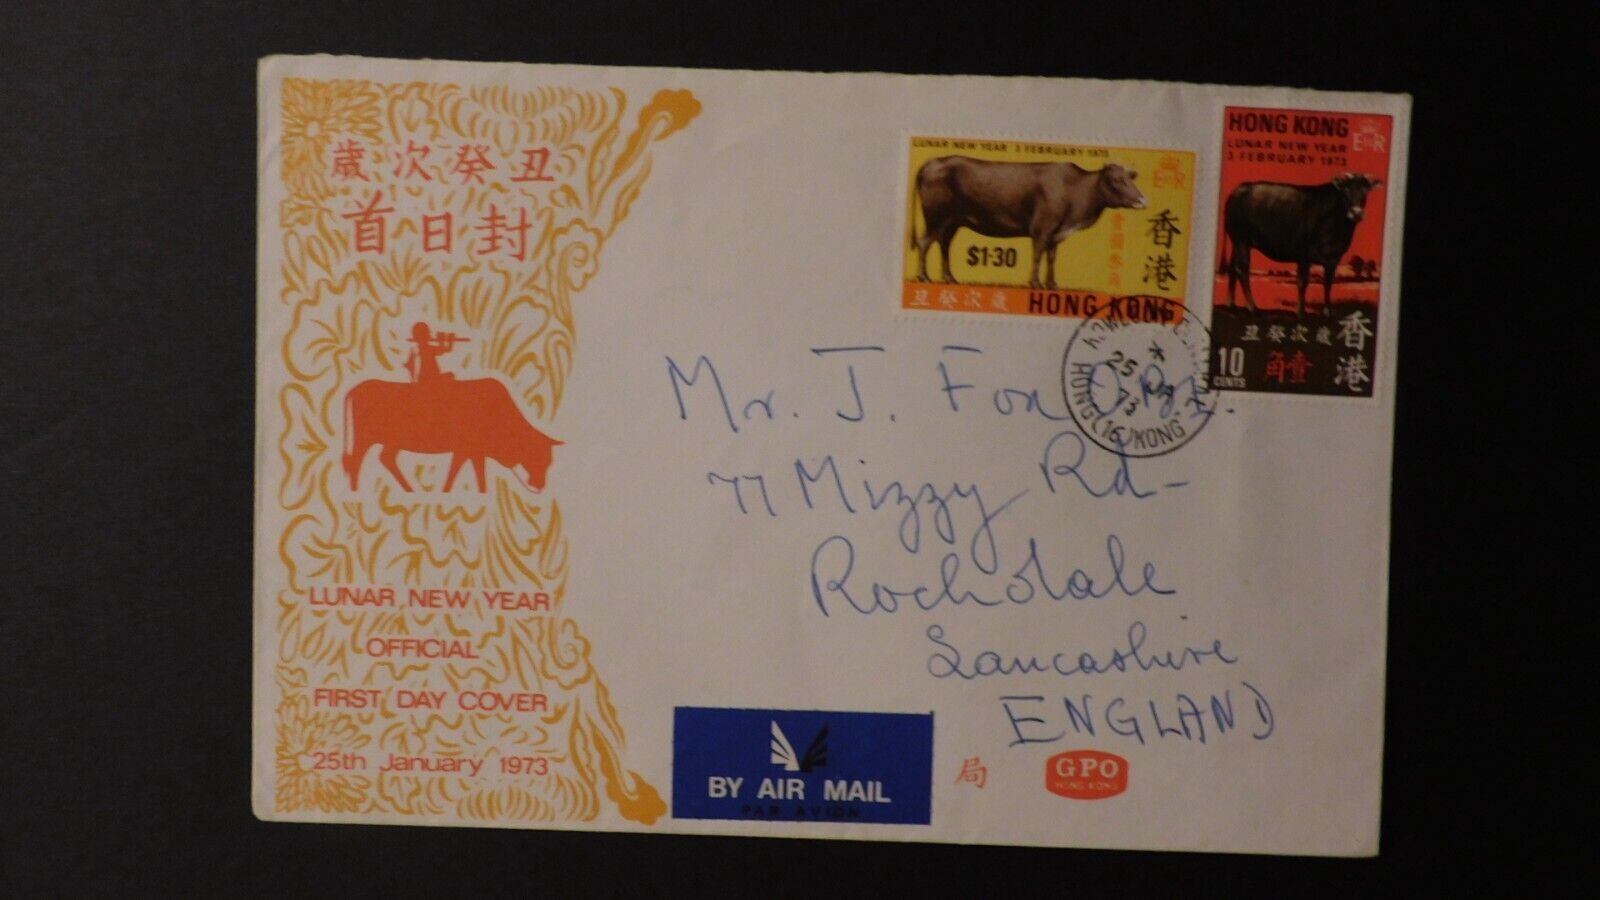 歲次癸丑
首日封
LUNAR NEW YEAR
OFFICIAL
FIRST DAY COVER
25th January 1973
LUNAR NEW YEAR 3 FEBRUARY 1973
E II R
香港
$1·30
壹圓叁角
丑癸次歲
HONG KONG
HONG KONG
E II R
LUNAR NEW YEAR
3 FEBRUARY 1973
丑癸次歲
香港
10
CENTS
角壹
KOWLOON CENTRAL
25
73
HONG KONG
Mr. J. Fox
77 Mizzy Rd-
Rochdale
Lancashire
ENGLAND
BY AIR MAIL
PAR AVION
局
GPO
HONG KONG